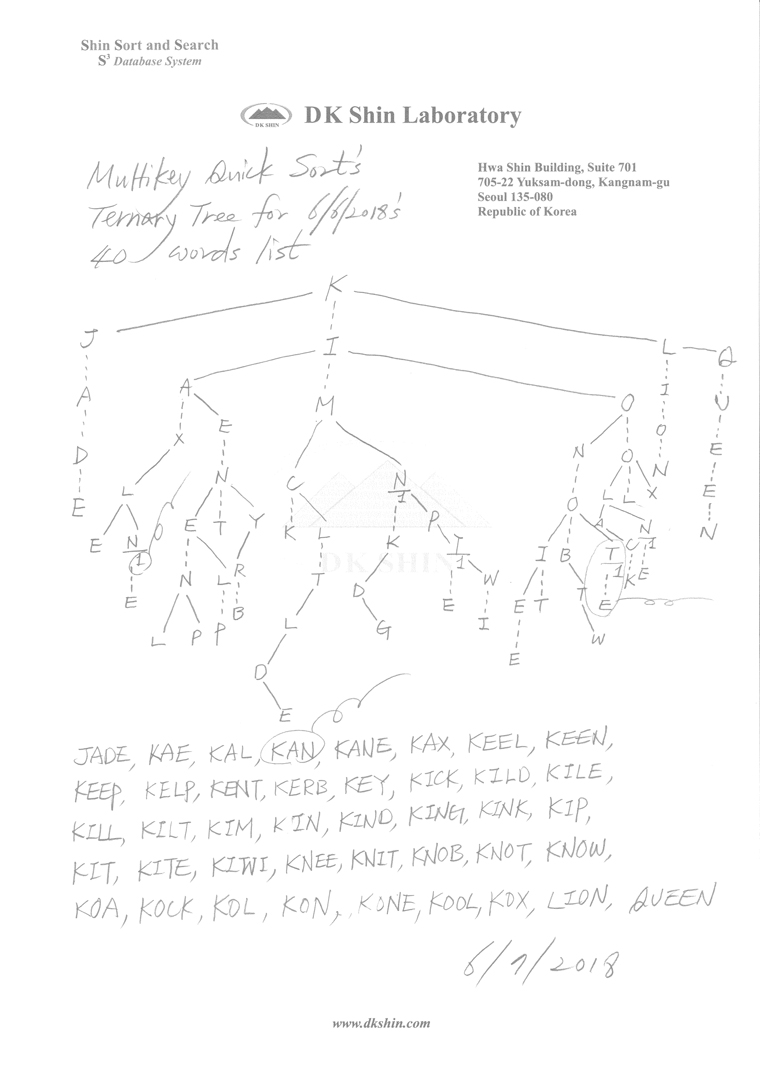 Shin Sort and Search
S³ Database System
DK SHIN
DK Shin Laboratory
Multikey Quick Sort's
Ternary Tree for 6/6/2018's
40 words list
Hwa Shin Building, Suite 701
705-22 Yuksam-dong, Kangnam-gu
Seoul 135-080
Republic of Korea
K
J I L Q
A A M O I U
D X E N O O E
E L N C N O L L X N E
E N E T Y K L K P T A C N N
1 1 1 1
E N L R T D E W I B T K E
L P P B L G I E T T E W
D E
E
DK SHIN
JADE, KAE, KAL, KAN, KANE, KAX, KEEL, KEEN,
KEEP, KELP, KENT, KERB, KEY, KICK, KILD, KILE,
KILL, KILT, KIM, KIN, KIND, KING, KINK, KIP,
KIT, KITE, KIWI, KNEE, KNIT, KNOB, KNOT, KNOW,
KOA, KOCK, KOL, KON, KONE, KOOL, KOX, LION, QUEEN
6/7/2018
www.dkshin.com